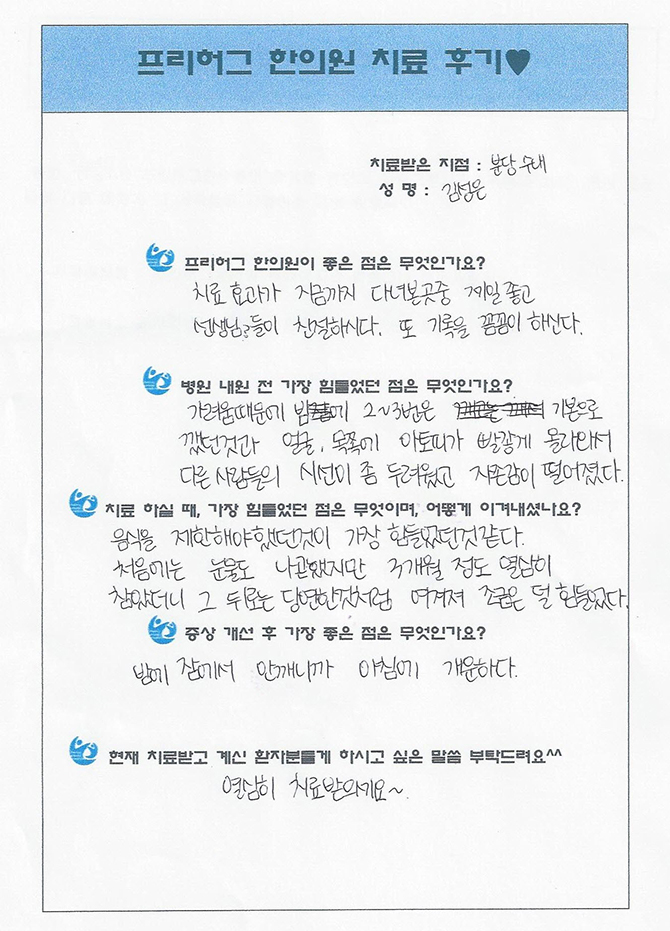 프리허그 한의원 치료 후기♥
치료받은 지점 : 분당 수내
성 명 : 김성은
프리허그 한의원이 좋은 점은 무엇인가요?
치료 효과가 지금까지 다녀본곳중 제일 좋고
선생님?들이 친절하시다. 또 기록을 꼼꼼이 하신다.
병원 내원 전 가장 힘들었던 점은 무엇인가요?
가려움때문에 밤에 2~3번은 기본으로
깼던것과 얼굴, 목쪽에 아토피가 빨갛게 올라와서
다른 사람들의 시선이 좀 두려웠고 자존감이 떨어졌다.
치료 하실 때, 가장 힘들었던 점은 무엇이며, 어떻게 이겨내셨나요?
음식을 제한해야했던것이 가장 힘들었던것같다.
처음에는 눈물도 나곤했지만 3개월 정도 열심히
참았더니 그 뒤로는 당연한것처럼 여겨져 조금은 덜 힘들었다.
증상 개선 후 가장 좋은 점은 무엇인가요?
밤에 잠에서 안깨니까 아침에 개운하다.
현재 치료받고 계신 환자분들게 하시고 싶은 말씀 부탁드려요^^
열심히 치료받으세요~